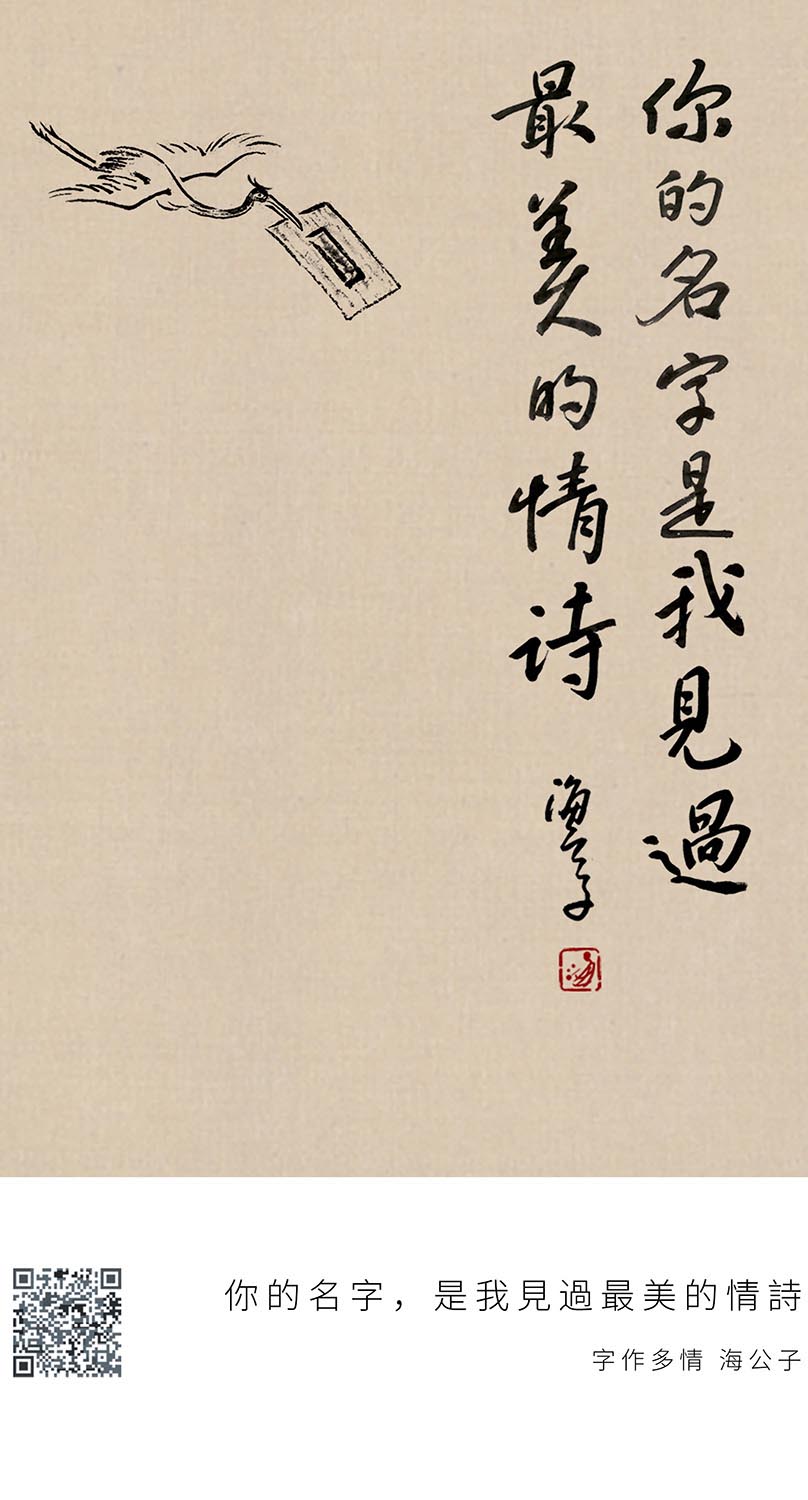 你的名字是我見過
最美的情詩
海公子
海
你的名字，是我見過最美的情詩
字作多情 海公子